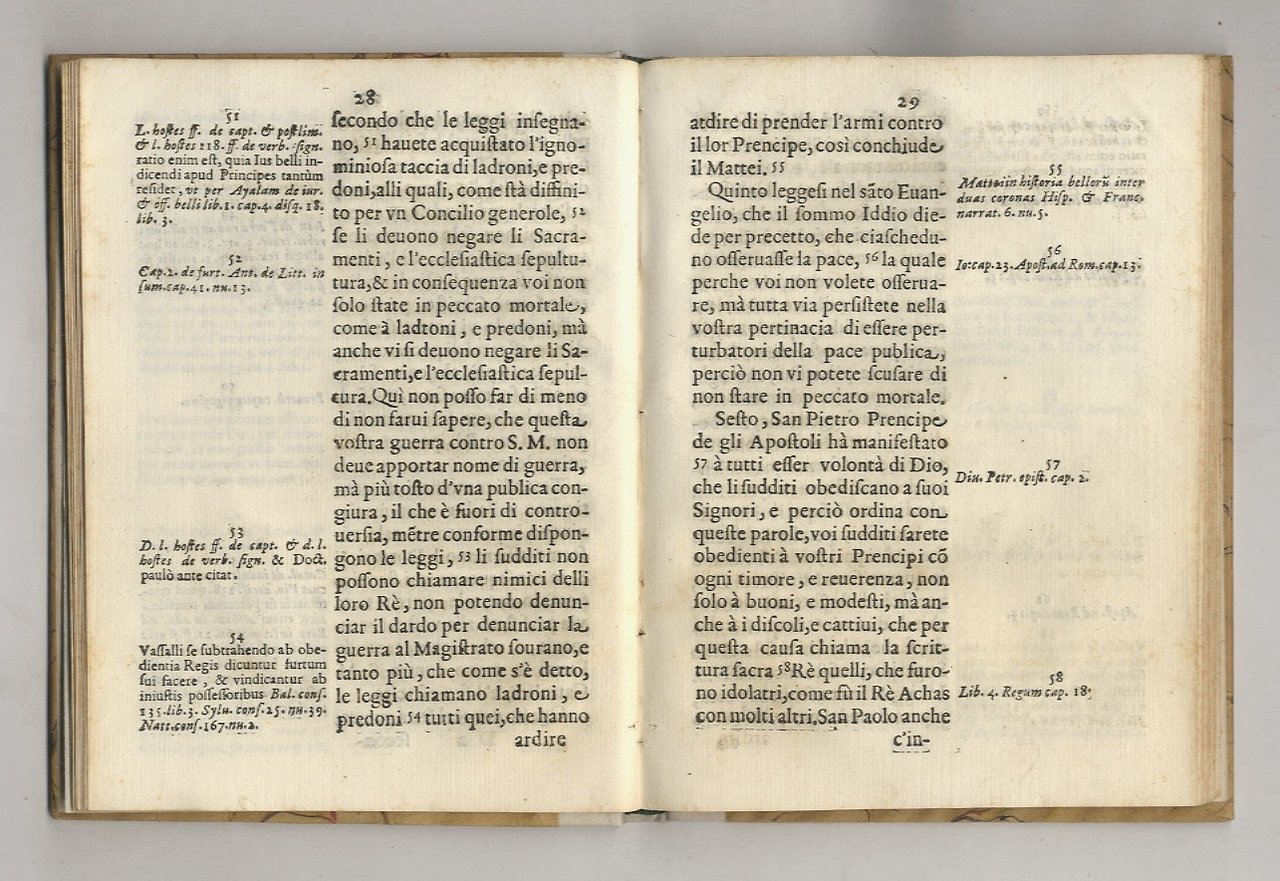 28
51
L. hostes ff. de capt. & postlim.
& l. hostes 218. ff. de verb. sign.
ratio enim est, quia Ius belli in-
dicendi apud Principes tantùm
residet, vt per Ayalam de iur.
& off. belli lib. 1. cap. 4. disq. 18.
lib. 3.
52
Cap. 2. de furt. Ant. de Litt. in
sum. cap. 41. nu. 13.
53
D. l. hostes ff. de capt. & d. l.
hostes de verb. sign. & Doct.
paulò ante citat.
54
Vassalli se subtrahendo ab obe-
dientia Regis dicuntur furtum
sui facere, & vindicantur ab
iniustis possessoribus Bal. cons.
135. lib. 3. Sylu. cons. 25. nu. 39.
Natt. cons. 167. nu. 2.
secondo che le leggi insegna-
no, 51 hauete acquistato l'igno-
miniosa taccia di ladroni, e pre-
doni, alli quali, come stà diffini-
to per vn Concilio generole, 52
se li deuono negare li Sacra-
menti, e l'ecclesiastica sepultu-
tura, & in consequenza voi non
solo state in peccato mortale,
come à ladtoni, e predoni, mà
anche vi si deuono negare li Sa-
cramenti, e l'ecclesiastica sepul-
tura. Quì non posso far di meno
di non farui sapere, che questa
vostra guerra contro S. M. non
deue apportar nome di guerra,
mà più tosto d'vna publica con-
giura, il che è fuori di contro-
uersia, mẽtre conforme dispon-
gono le leggi, 53 li sudditi non
possono chiamare nimici delli
loro Rè, non potendo denun-
ciar il dardo per denunciar la
guerra al Magistrato sourano, e
tanto più, che come s'è detto,
le leggi chiamano ladroni, e
predoni 54 tutti quei, che hanno
ardire
29
atdire di prender l'armi contro
il lor Prencipe, così conchiude
il Mattei. 55
Quinto leggesi nel sãto Euan-
gelio, che il sommo Iddio die-
de per precetto, che ciaschedu-
no osseruasse la pace, 56 la quale
perche voi non volete osserua-
re, mà tutta via persistete nella
vostra pertinacia di essere per-
turbatori della pace publica,
perciò non vi potete scusare di
non stare in peccato mortale.
Sesto, San Pietro Prencipe
de gli Apostoli hà manifestato
57 à tutti esser volontà di Dio,
che li sudditi obediscano a suoi
Signori, e perciò ordina con
queste parole, voi sudditi sarete
obedienti à vostri Prencipi cõ
ogni timore, e reuerenza, non
solo à buoni, e modesti, mà an-
che à i discoli, e cattiui, che per
questa causa chiama la scrit-
tura sacra 58 Rè quelli, che furo-
no idolatri, come fù il Rè Achas
con molti altri. San Paolo anche
c'in-
55
Matteiin historia bellorũ inter
duas coronas Hisp. & Franc.
narrat. 6. nu. 5.
56
Io: cap. 23. Apost. ad Rom. cap. 13.
57
Diu. Petr. epist. cap. 2.
58
Lib. 4. Regum cap. 18.